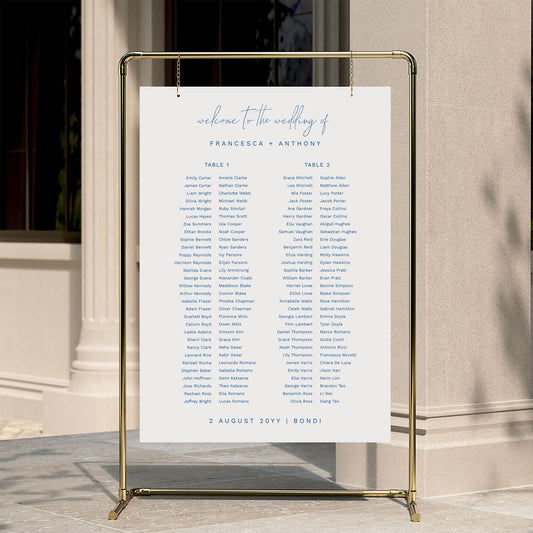 welcome to the wedding of
FRANCESCA + ANTHONY
TABLE 1
Emily Carter Amelia Clarke
James Carter Nathan Clarke
Liam Wright Charlotte Webb
Olivia Wright Michael Webb
Hannah Morgan Ruby Sinclair
Lucas Hayes Thomas Scott
Zoe Summers Isla Cooper
Ethan Brooks Noah Cooper
Sophie Bennett Chloe Sanders
Daniel Bennett Ryan Sanders
Poppy Reynolds Ivy Parsons
Harrison Reynolds Elijah Parsons
Matilda Evans Lily Armstrong
George Evans Alexander Coats
Willow Kennedy Maddison Blake
Arthur Kennedy Connor Blake
Isabelle Fraser Phoebe Chapman
Adam Fraser Oliver Chapman
Scarlett Boyd Florence Mills
Callum Boyd Owen Mills
Leslie Adams Vincent Kim
Sherri Clark Grace Kim
Nancy Clark Neha Desai
Leonard Ross Kabir Desai
Randall Rocha Leonardo Romano
Stephen Baker Isabella Romano
John Hoffman Demi Katsaros
Jose Richards Theo Katsaros
Rachael Ross Ella Romano
Jeffrey Bright Lucas Romano
TABLE 2
Grace Mitchell Sophie Allen
Leo Mitchell Matthew Allen
Mia Foster Lucy Porter
Jack Foster Jacob Porter
Ava Gardner Freya Collins
Henry Gardner Oscar Collins
Ella Vaughan Abigail Hughes
Samuel Vaughan Sebastian Hughes
Zara Reid Evie Douglas
Benjamin Reid Liam Douglas
Eliza Harding Molly Hawkins
Joshua Harding Dylan Hawkins
Sophia Barber Jessica Pratt
William Barber Evan Pratt
Harriet Lowe Bonnie Simpson
Elliot Lowe Blake Simpson
Annabelle Watts Rose Hamilton
Caleb Watts Gabriel Hamilton
Georgia Lambert Emma Doyle
Finn Lambert Tyler Doyle
Daniel Thompson Marco Romano
Grace Thompson Antonio Ricci
Noah Thompson Giulia Conti
Lily Thompson Francesca Moretti
James Harris Chiara De Luca
Emily Harris Jisoo Han
Ella Harris Kevin Lim
George Harris Brandon Teo
Benjamin Ross Li Wei
Olivia Ross Xiang Tan
2 AUGUST 20YY | BONDI